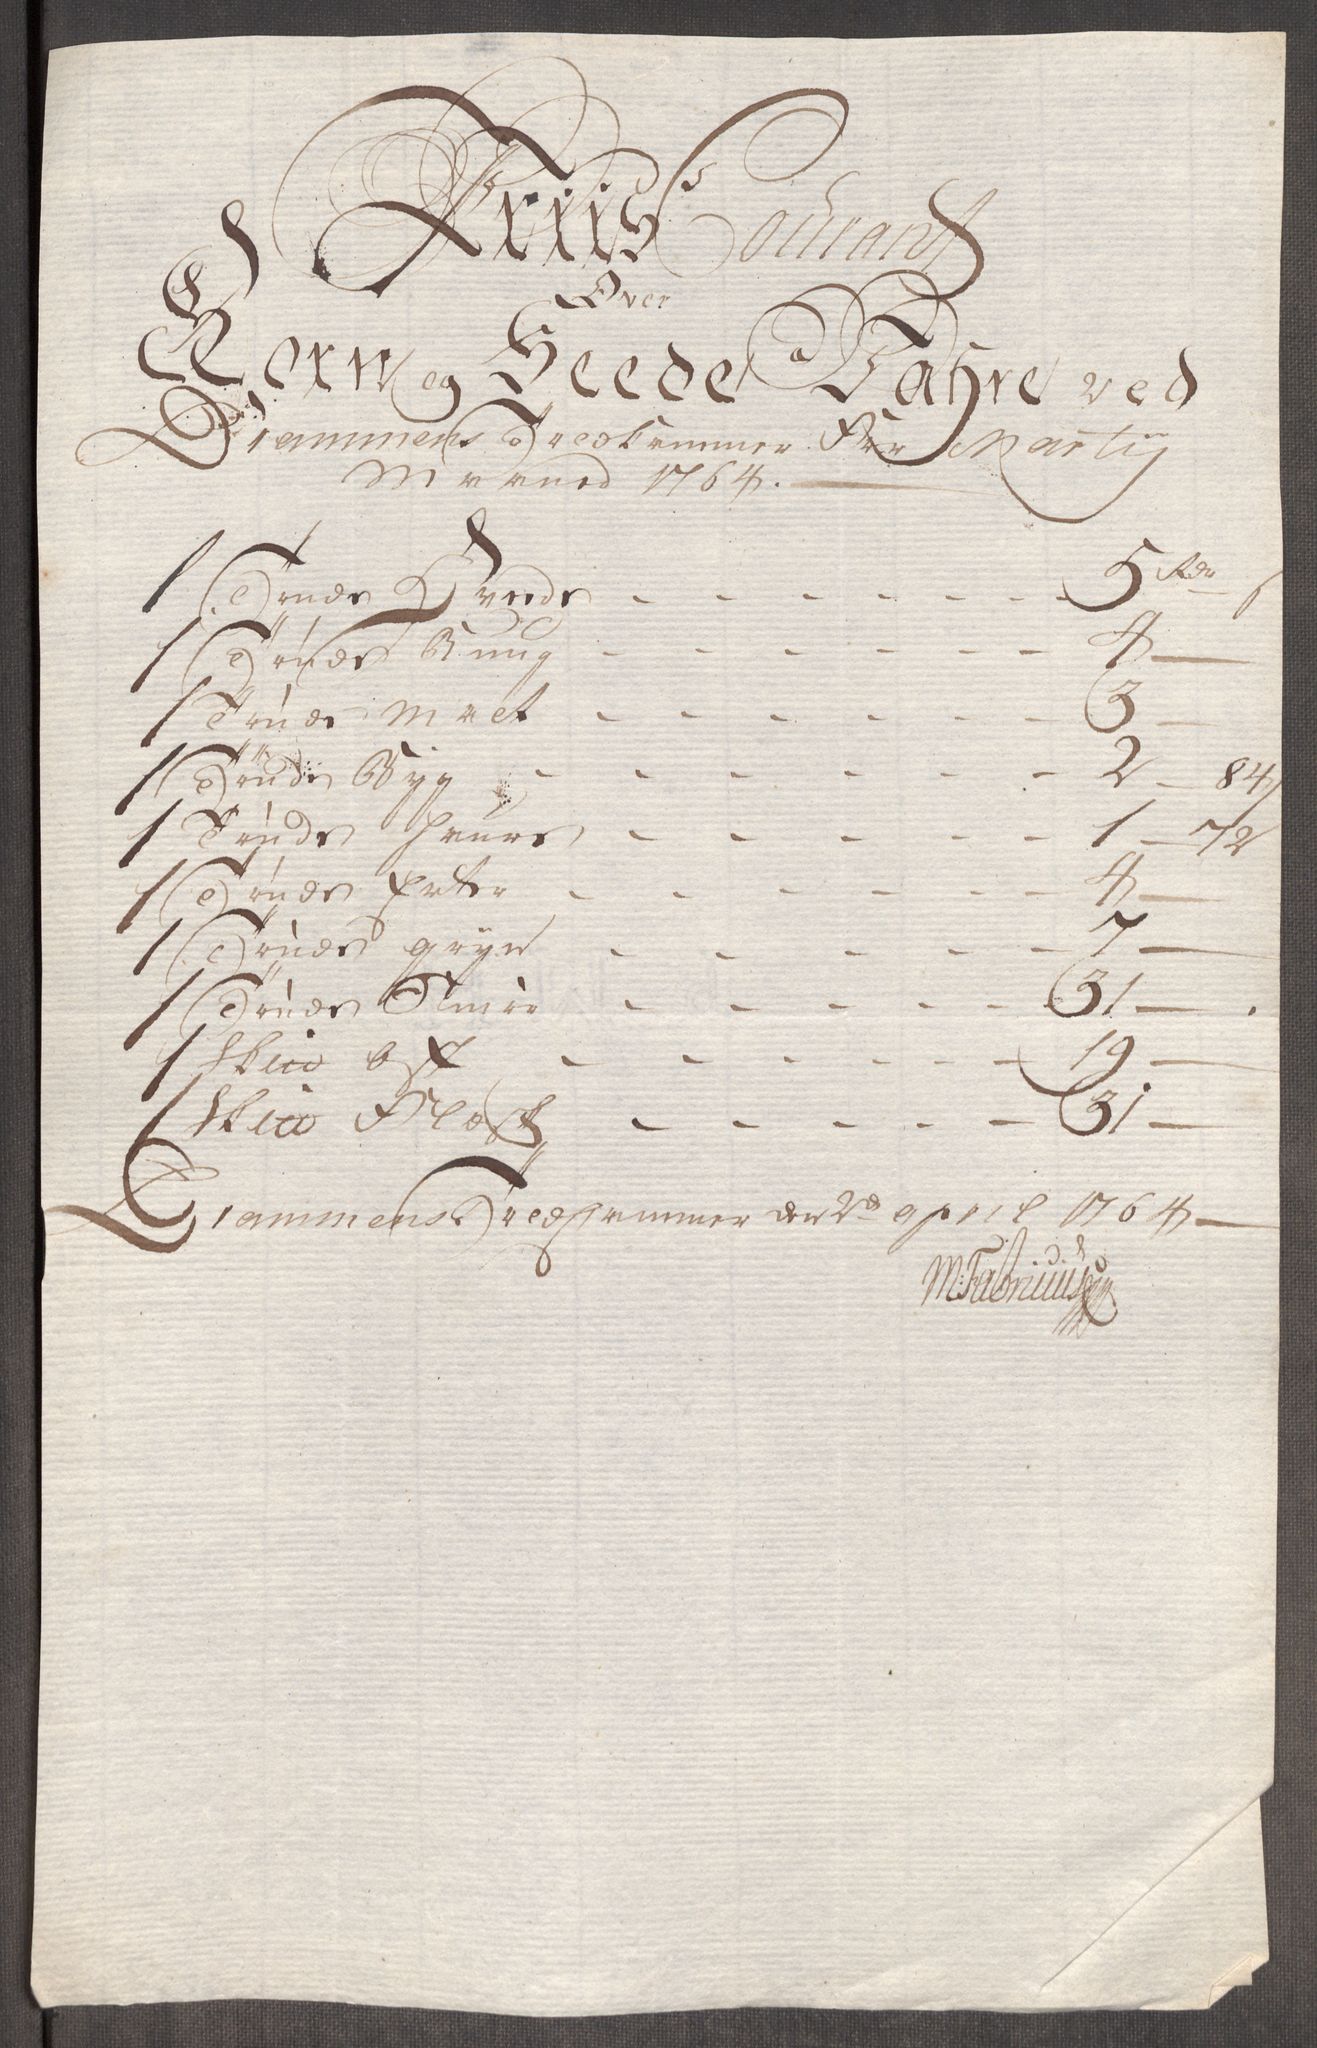 Priis Courant
Over
Korn og Feede Vahre ved
Drammens Tredkammer For Marty
Maaned 1764.
1 Tønde Hvede - - - - - - - - 5 Rdr ß
1 Tønde Rug - - - - - - - 4 —
1 Tønde Malt - - - - - - 3 —
1 Tønde Byg - - - - - - 2 - 84
1 Tønde Haure - - - - - 1 - 72
1 Tønde Erter - - - - - - 4 —
1 Tønde gryn - - - - - 7 —
1 Tønde Smør - - - - - 31 —
1 Skippd ost - - - - - 19 —
1 Skippd Flesk - - - - - 31 —
Drammens Tredkammer den 2d april 1764 —
M: Fabriciius